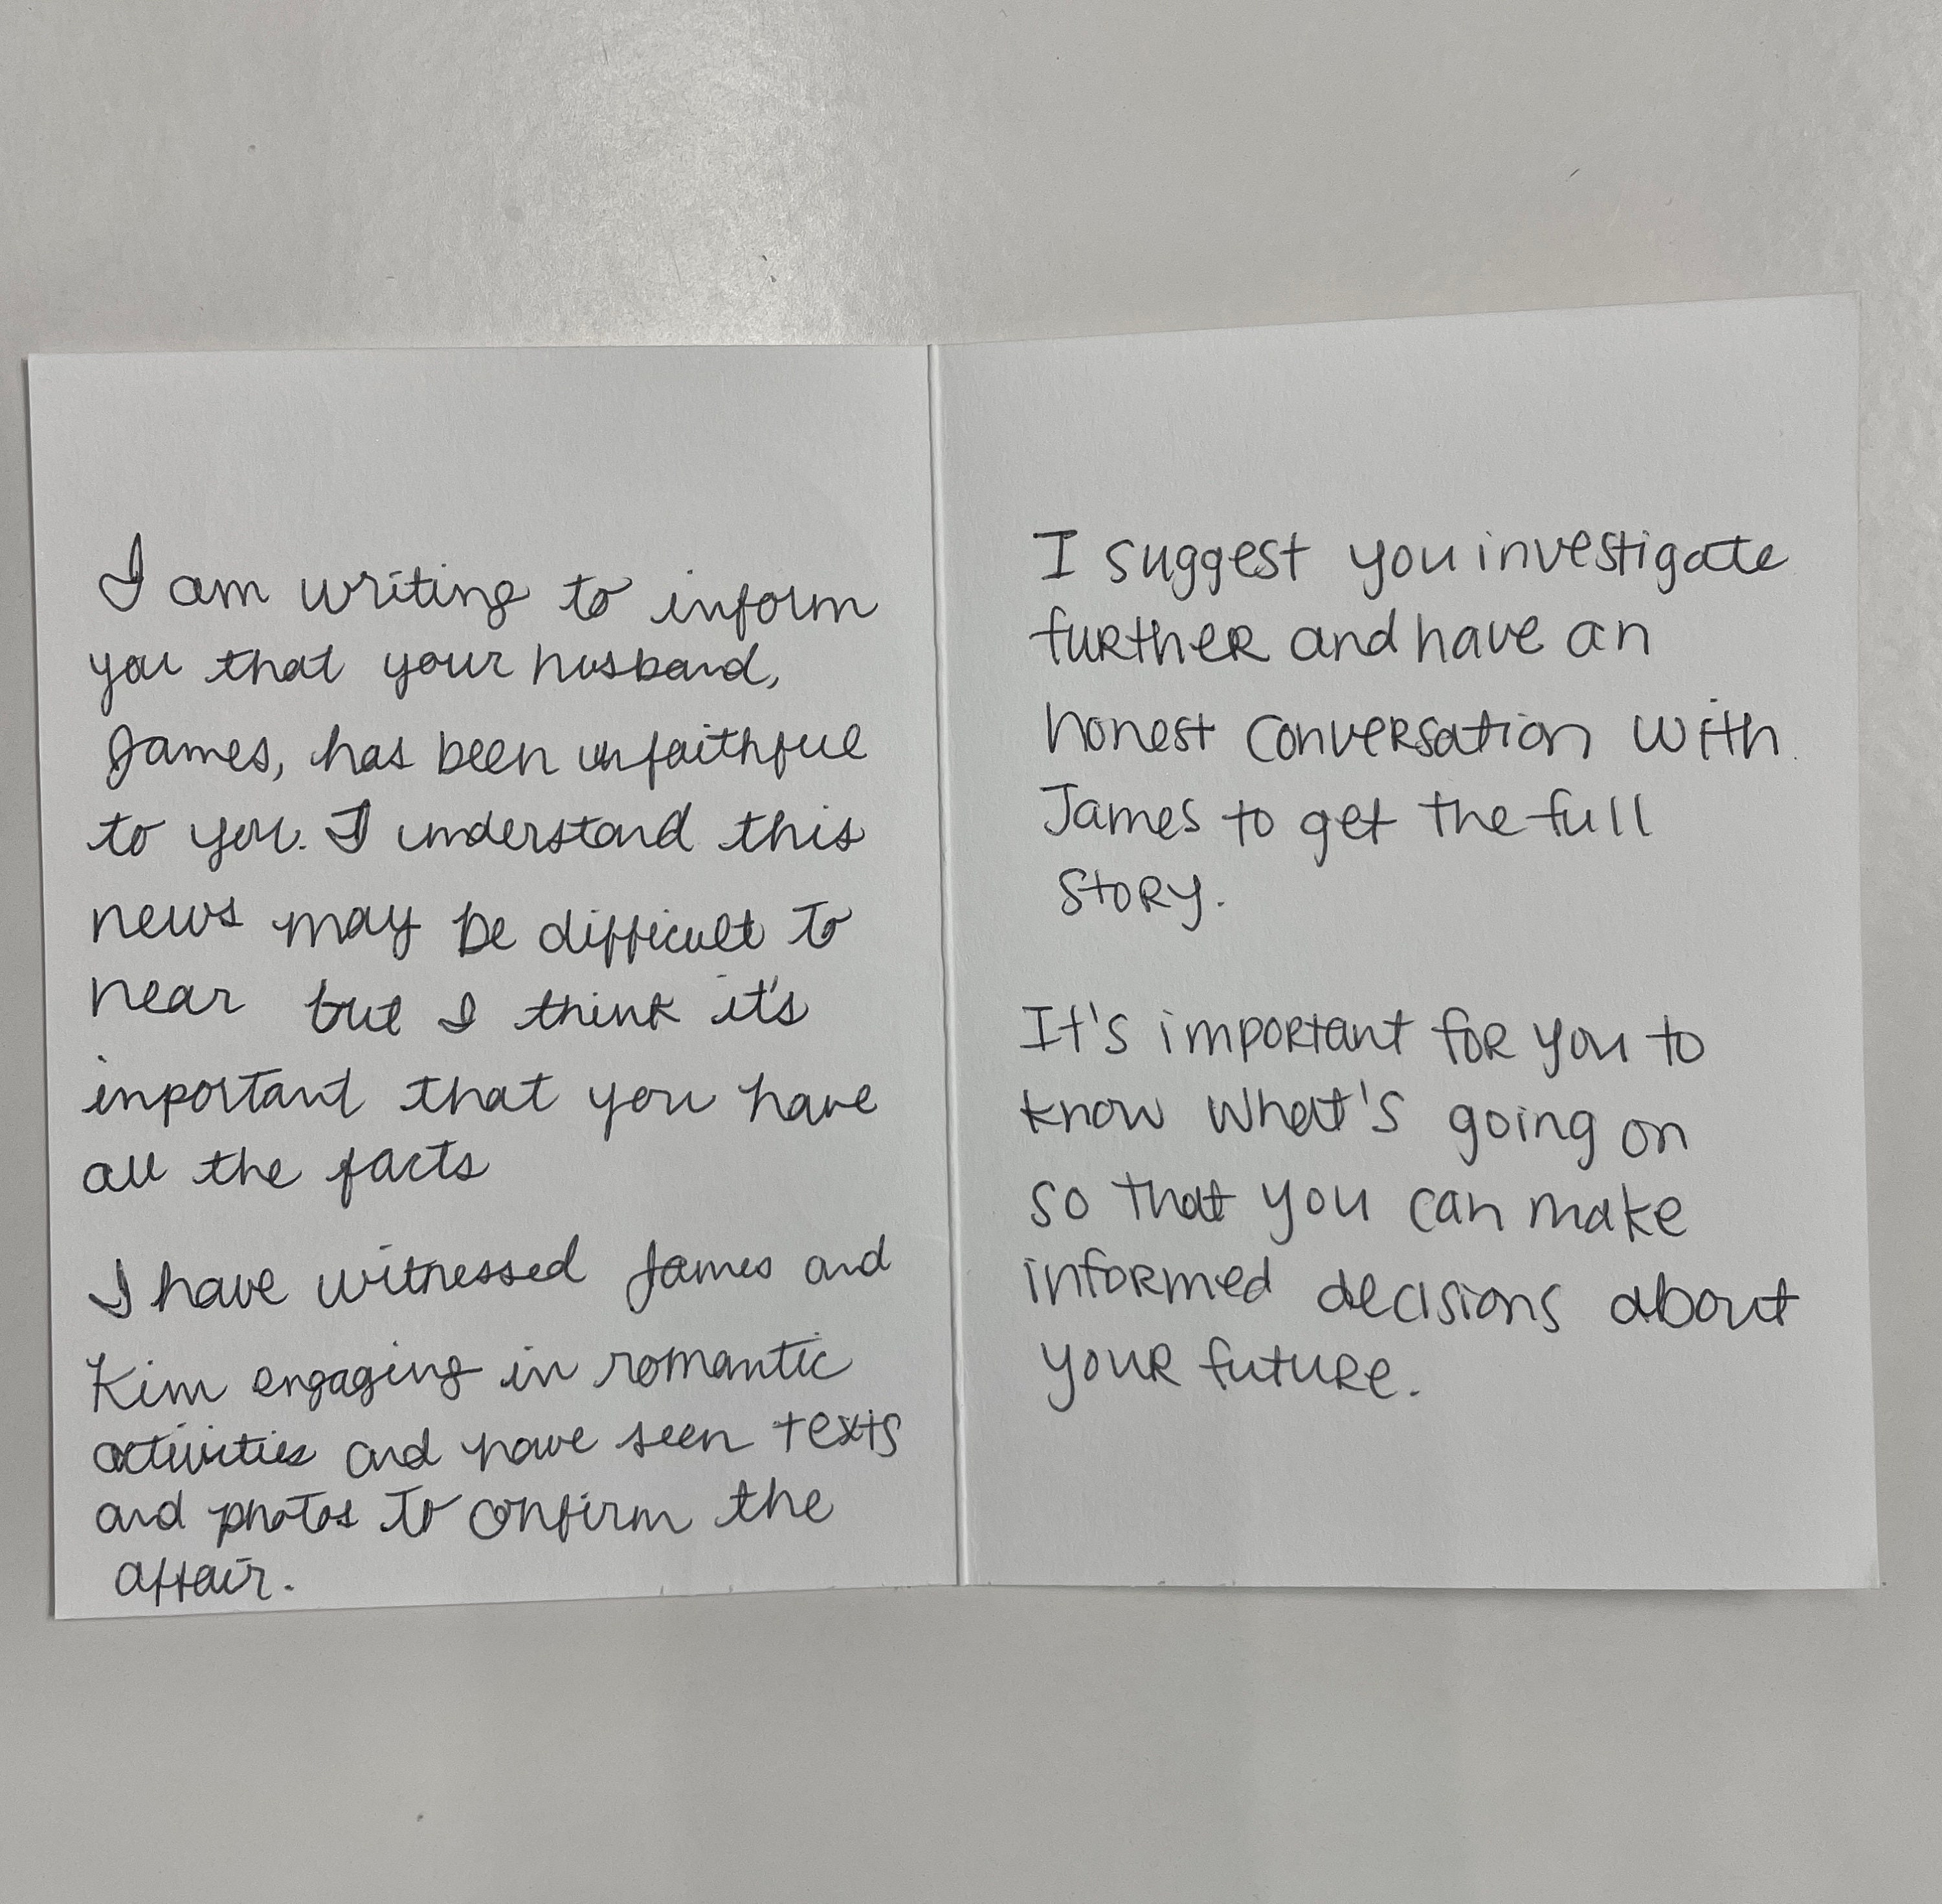 I am writing to inform
you that your husband,
James, has been unfaithful
to you. I understand this
news may be difficult to
hear but I think it's
important that you have
all the facts
I have witnessed James and
Kim engaging in romantic
activities and have seen texts
and photos to confirm the
affair.
I suggest you investigate
further and have an
honest conversation with
James to get the full
story.
It's important for you to
know what's going on
so that you can make
informed decisions about
your future.